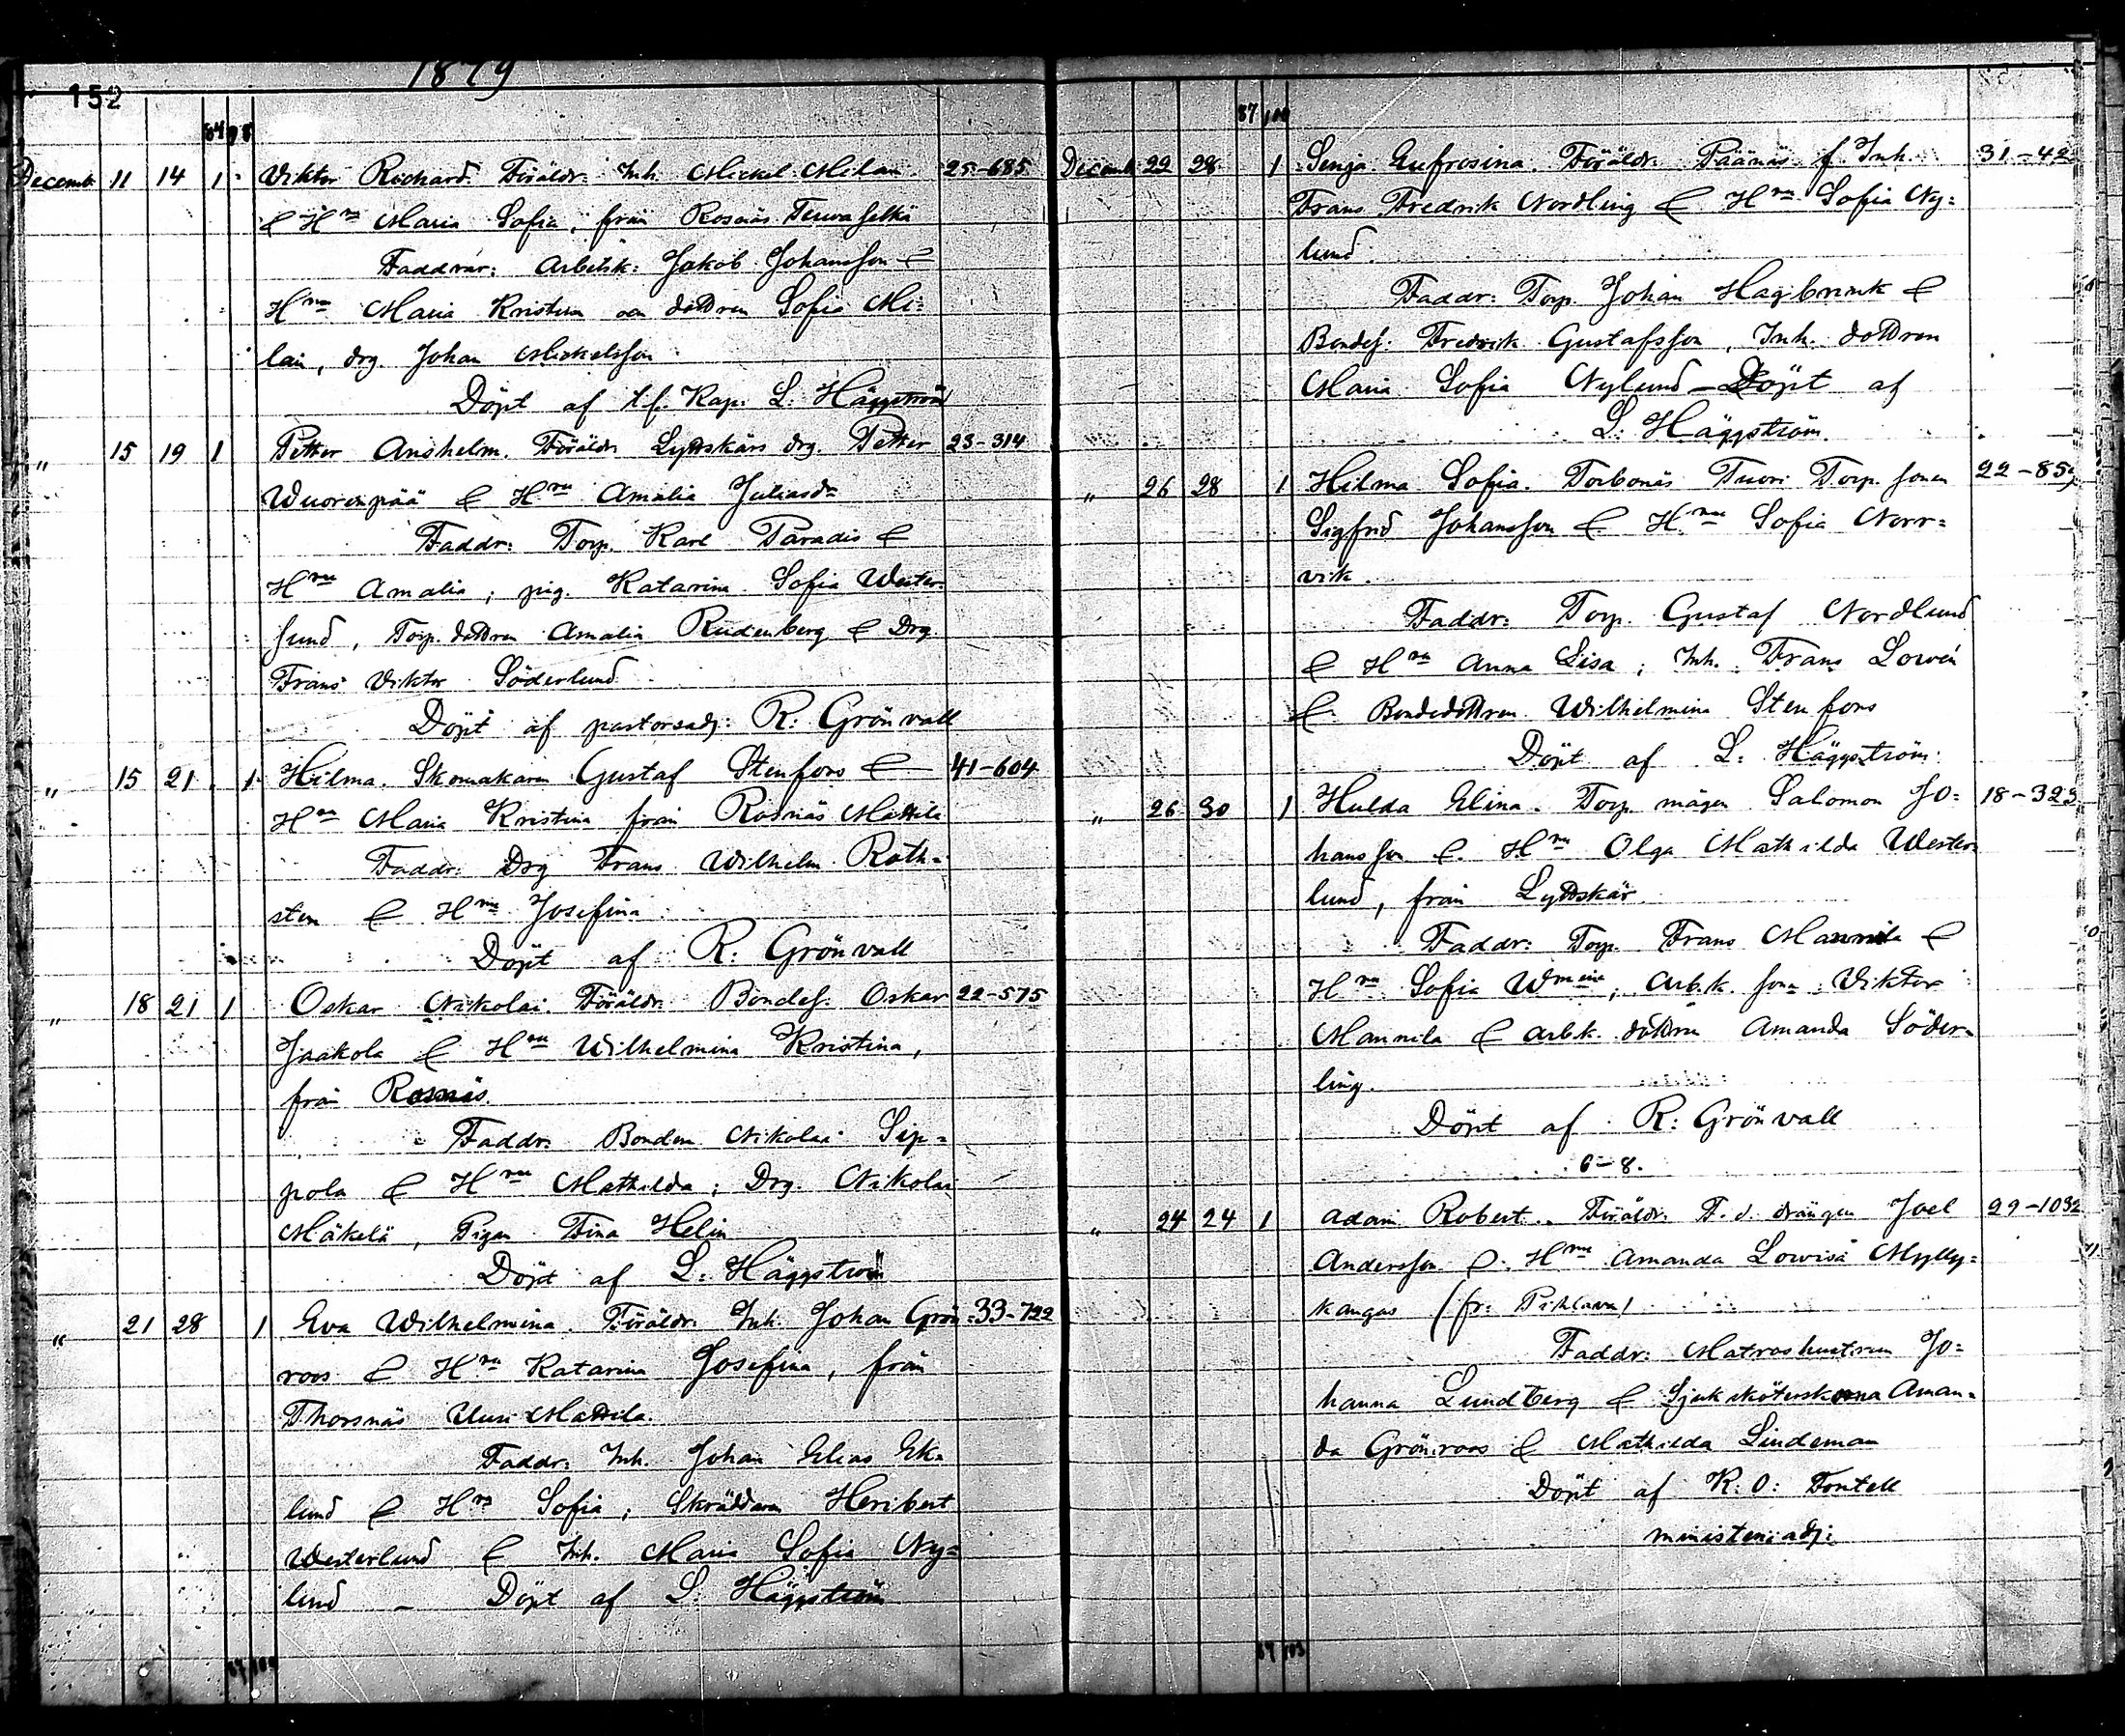 1879
152
84 98
Decemb. 11 14 1 Viktor Richard. Föräldr. Inh. Mickel Milan 25-685
& Hru Maria Sofia, från Rosnäs Terva selkä
Faddrar: Arbetsk: Jakob Johansson &
Hru Maria Kristina och dottren Sofia Mi=
lan, drg. Johan Mickelsson
Döpt af t.f. Kap. L. Häggström
" 15 19 1 Petter Anshelm. Föräldr. Lyttskärs drg. Petter 23-314
Wuorenpää & Hru Amalia Juliasdr
Faddr: Torp. Karl Paradis &
Hru Amalia; pig. Katarina Sofia Wester-
lund, Torp. dottren Amalia Rudenberg & Drg
Frans Viktor Söderlund
Döpt af pastorsadj: R. Grönvall
" 15 21 1 Hilma. Skomakaren Gustaf Stenfors & 41-604
Hru Maria Kristina från Rosnäs Mattila
Faddr: Drg Frans Wilhelm Roth-
sten & Hru Josefina
Döpt af R. Grönvall
" 18 21 1 Oskar Nikolai. Föräldr. Bondes. Oskar 22-575
Jaakola & Hru Wilhelmina Kristina,
från Rosnäs.
Faddr: Bonden Nikolai Sip=
pola & Hru Mathilda; Drg. Nikolai
Mäkelä, Pigan Fina Helin
Döpt af L: Häggström
" 21 28 1 Eva Wilhelmina. Föräldr. Inh. Johan Grön= 33-722
roos & Hru Katarina Josefina, från
Thorsnäs Uusi Mattila.
Faddr: Inh. Johan Elias Ek=
lund & Hru Sofia; Skräddaren Heribert
Westerlund & Inh. Maria Sofia Ny=
lund – Döpt af L. Häggström
87 100
87 100
Decemb 22 28 1 Senja Eufrosina. Föräldr. Päänäs f. Inh. 31-42
Frans Fredrik Nordling & Hru Sofia Ny=
lund.
Faddr: Torp. Johan Hagbrink &
Bondes: Fredrik Gustafsson, Inh. dottren
Maria Sofia Nylund – Döpt af
L. Häggström.
" 26 28 1 Hilma Sofia. Torbonäs Tuori Torp. sonen 22-85
Sigfrid Johansson & Hru Sofia Norr=
vik.
Faddr: Torp. Gustaf Nordlund
& Hru Anna Lisa; Inh. Frans Lowén
& Bondedottren Wilhelmina Stenfors
Döpt af L. Häggström.
" 26 30 1 Hulda Elina. Torp. mågen Salomon Jo= 18-323
hansson & Hru Olga Mathilda Wester-
lund, från Lyttskär.
Faddr: Torp. Frans Mannila &
Hru Sofia Wmina; Arb.k. son Viktor
Mannila & arb.k. dottren Amanda Söder-
ling.
Döpt af R: Grönvall
6–8.
" 24 24 1 Adam Robert. Föräldr. F. d. drängen Joel 29-1032
Andersson & Hru Amanda Lowisa Mylly=
kangas (fr: Pihlava)
Faddr: Matroshustrun Jo=
hanna Lundberg & Sjuksköterskorna Aman=
da Grönroos & Mathilda Lindeman
Döpt af K. O: Fontell
ministeri adj:
87 103